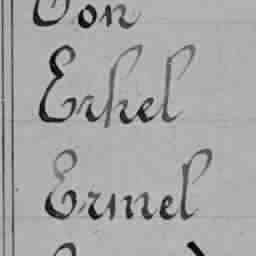 Von
Erkel
Ermel